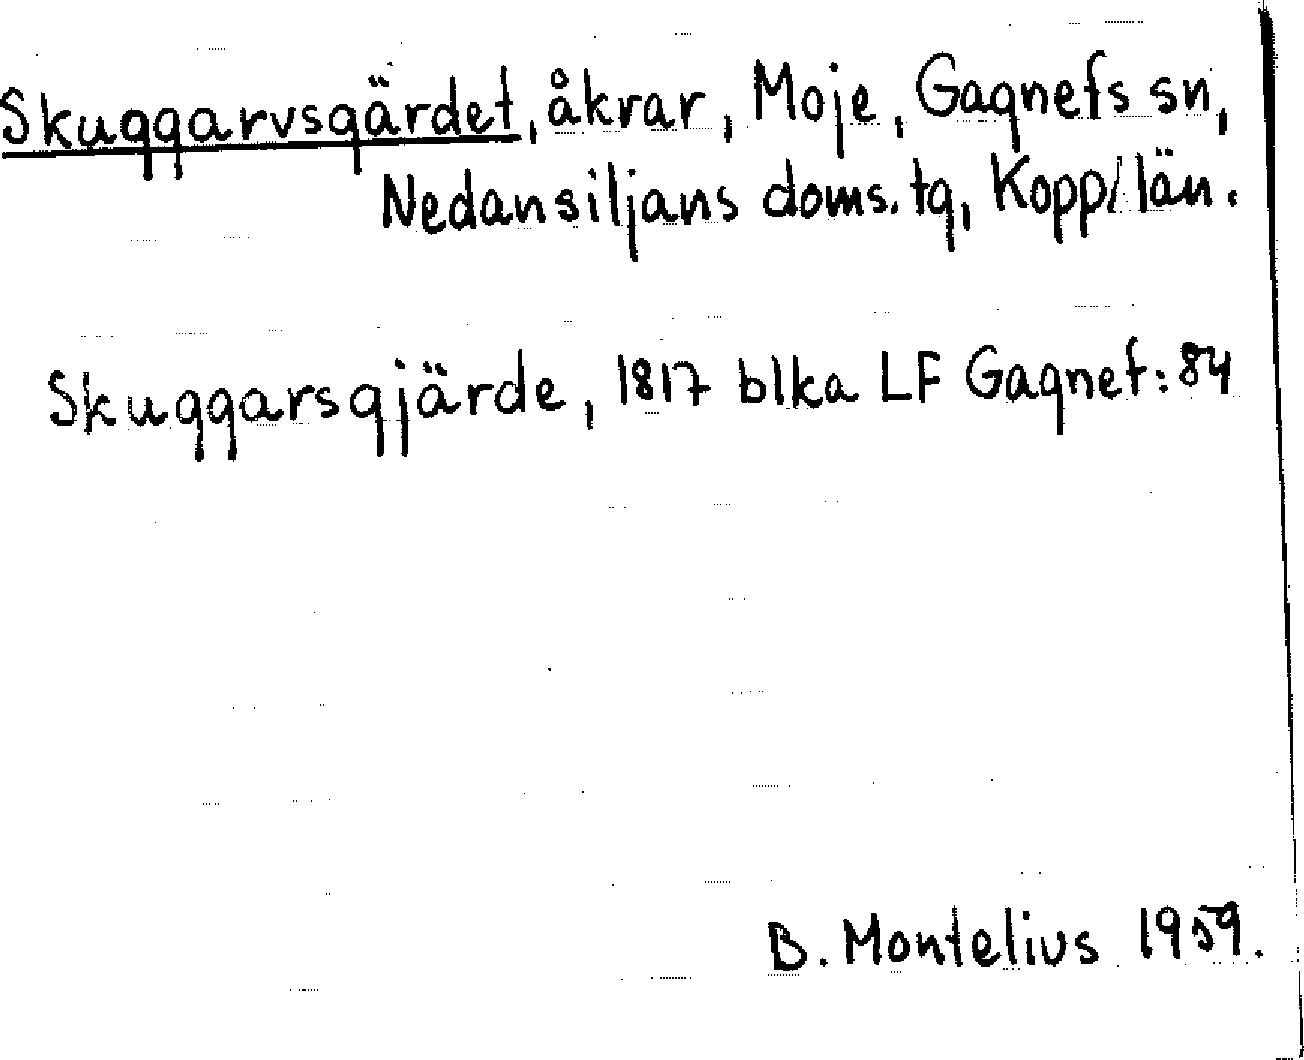 Skuggarvsgärdet, åkrar, Moje, Gagnefs sn,
Nedansiljans doms. tg, Kopp. län.
Skuggarsgjärde, 1817 blka LF Gagnef: 84
B. Montelius 1959.